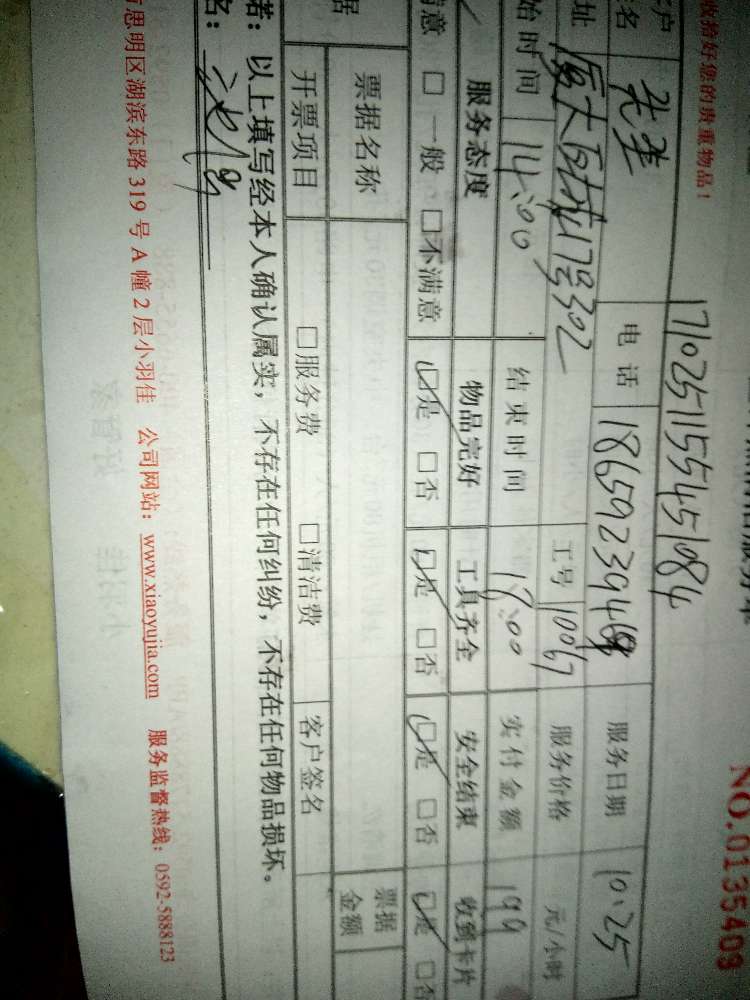 收拾好您的贵重物品！
NO.0135409
1710251155451084
客户
名 先生 电话 18659239468 服务日期 10.25
址 厦大西村17号302 工号 10067 服务价格 元/小时
始时间 14:00 结束时间 18:00 实付金额 199
服务态度 物品完好 工具齐全 安全结束 收到卡片
满意 □一般 □不满意 ☑是 □否 ☑是 □否 ☑是 □否 ☑是 □否
据 票据名称 票据金额
开票项目 □服务费 □清洁费 客户签名
若：以上填写经本人确认属实，不存在任何纠纷，不存在任何物品损坏。
名：
思明区湖滨东路319号A幢2层小羽佳 公司网站：www.xiaoyujia.com 服务监督热线：0592-5888123